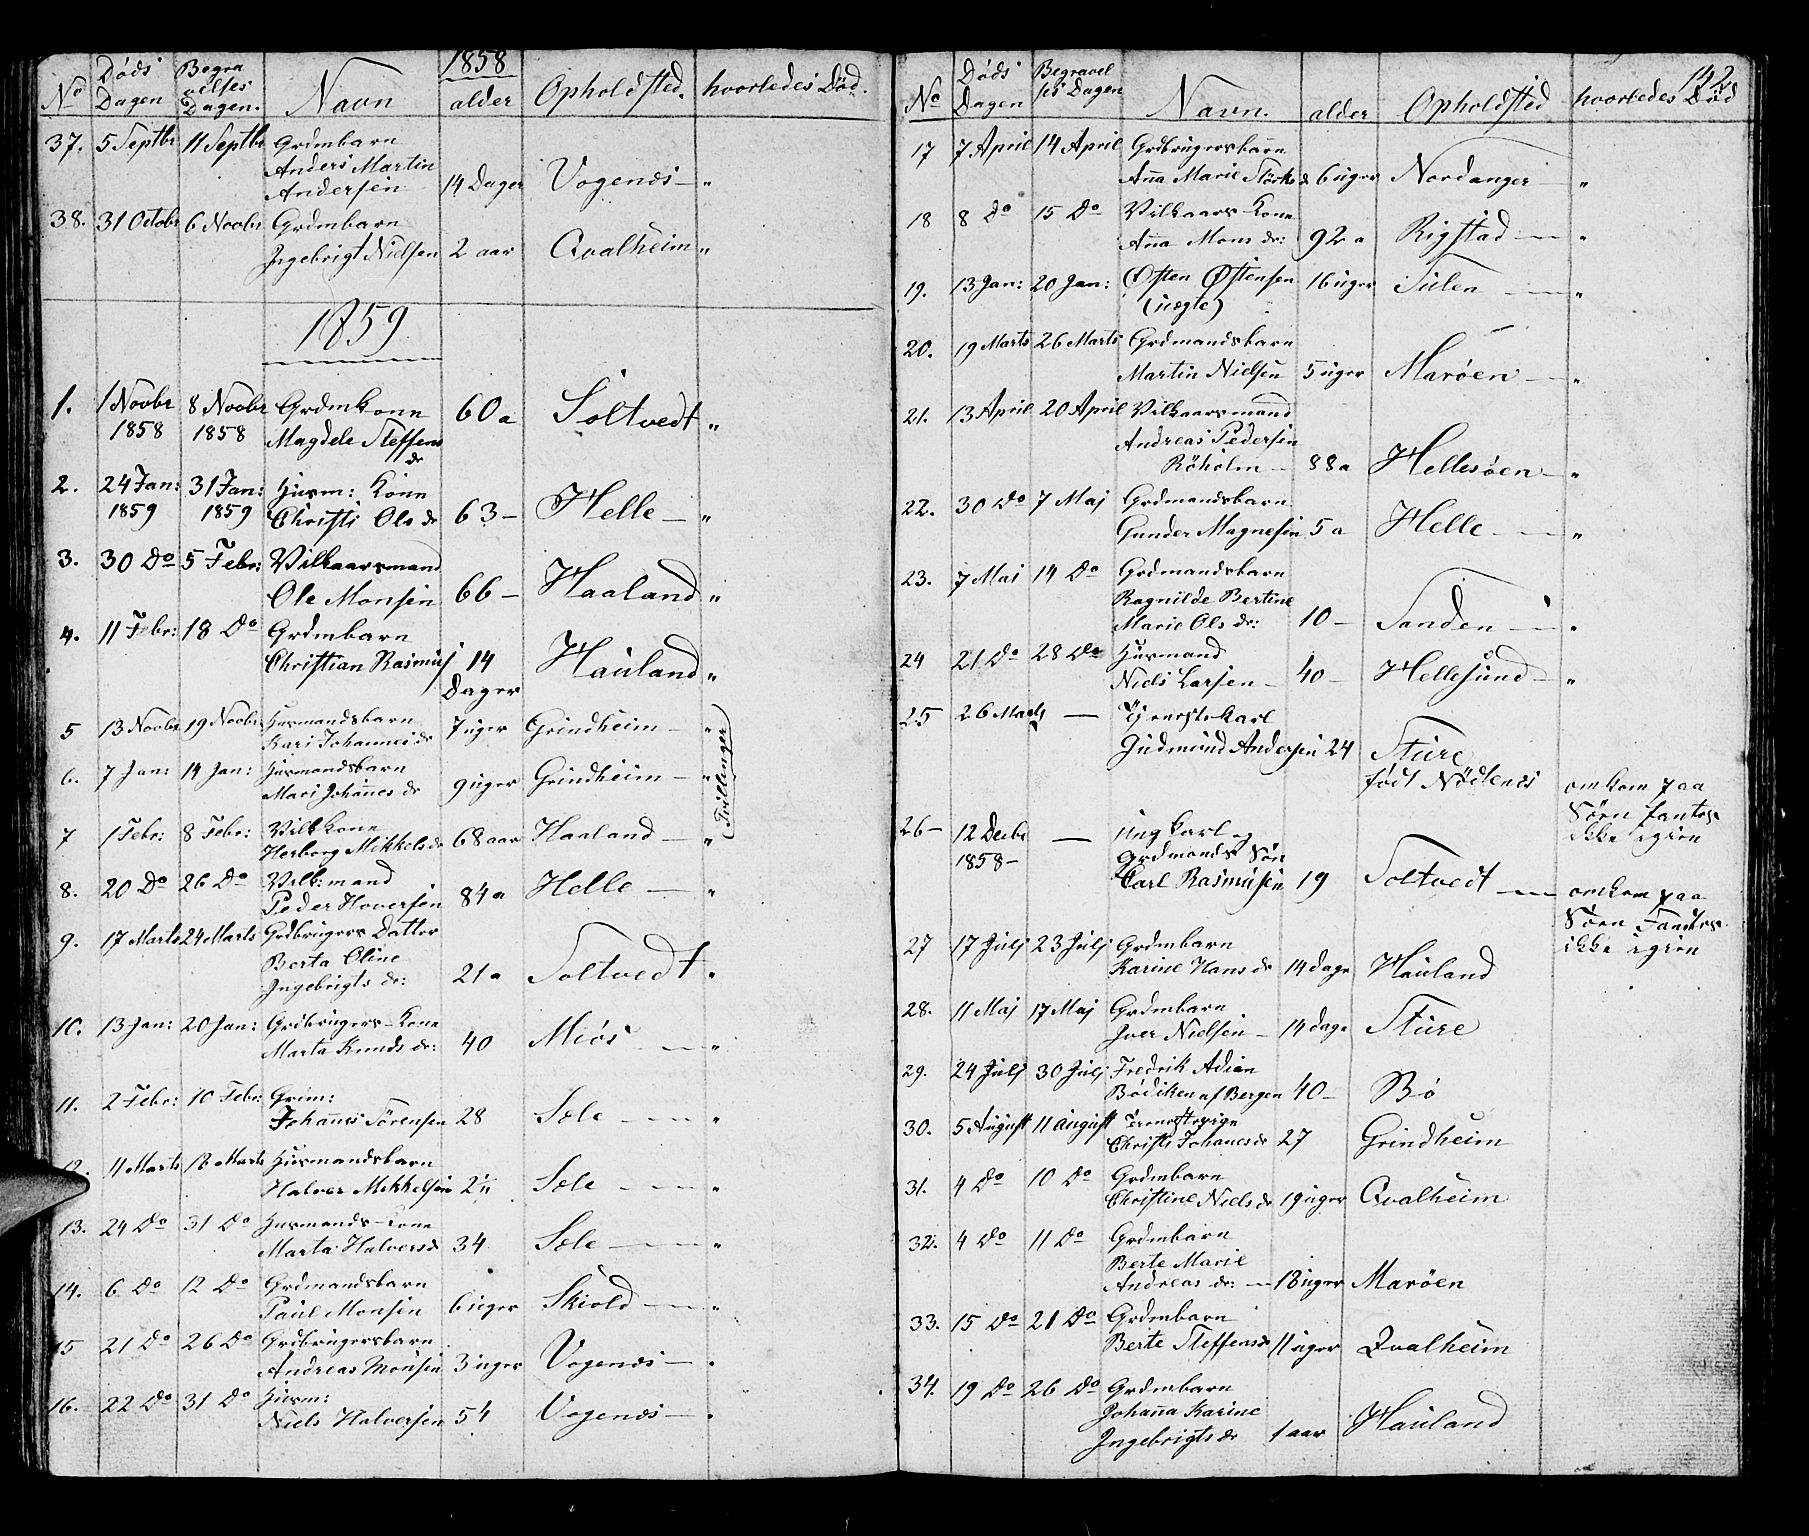 1858
No Døds Dagen Begravelses Dagen. Navn alder Opholdsted. hvorledes Død.
37. 5 Septbr 11 Septbr Grdmbarn
Anders Martin
Andersen 14 Dager Vogenæs — "
38. 31 Octobr 6 Novbr Grdmbarn
Ingebrigt Nielsen 2 aar Qvalheim "
1859
1. 1 Novbr 8 Novbr Grdmkone 60 a Soltvedt "
1858 1858 Magdele Steffens
dr
2. 24 Jan: 31 Jan: Husm: Kone
1859 1859 Christi Ols dr 63 — Helle — "
3. 30 Do 5 Febr: Vilkaarsmand
Ole Monsen 66 — Haaland "
4. 11 Febr: 18 Do Grdmbarn
Christian Rasmus 14 Hauland "
Dager
5 13 Novbr 19 Novbr Husmandsbarn
Kari Johannes dr 7 uger Grindheim — "
6. 7 Jan: 14 Jan: Husmandsbarn
Mari Johannes dr 9 uger Grindheim — "
(Tvillinger)
7 1 Febr: 8 Febr: Vilkkone
Herborg Mikkels dr 68 aar Haaland — "
8. 20 Do 26 Do Vilk: mand
Peder Hoversen 84 a Helle — "
9. 17 Marts 24 Marts Grdbrugers Datter
Berta Oline
Ingebrigts dr: 21 a Soltvedt "
10. 13 Jan: 20 Jan: Grdbrugers-Kone
Marta Knuds dr: 40 Miøs — "
11. 2 Febr: 10 Febr: Grdm:
Johannes Sørensen 28 Sæle — "
12. 11 Marts 18 Marts Husmandsbarn
Halvor Mikkelsen Sæle — "
13. 24 Do 31 Do Husmands-Kone
Marta Halvorsdr 34 Sæle — "
14. 6 Do 12 Do Grdmandsbarn
Paul Monsen 6 uger Skiold — "
15 21 Do 26 Do Grdbrugersbarn
Andreas Monsen 3 uger Vogenæs — "
16. 22 Do 31 Do Husm:
Niels Halversen 54 Vogenæs — "
142
No Døds Dagen Begravelses Dagen Navn. alder Opholdsted hvorledes Død
17 7 April 14 April Grdbrugersbarn
Anna Marie Størks dr 6 uger Nordanger — "
18 8 Do 15 Do Vilkaars-Kone
Anna Mons dr: 92 a Rigstad — "
19. 13 Jan: 20 Jan: Østen Østensen 16 uger Tulen — "
(uægte)
20. 19 Marts 26 Marts Grdmandsbarn
Martin Nielsen 5 uger Marøen — "
21. 13 April 20 April Vilkaarsmand
Andreas Pedersen
Røholm — 88 a Hellesøen — "
22. 30 Do 7 Maj Grdmandsbarn
Gunder Magnesen 5 a Helle — "
23. 7 Mai 14 Do Grdmandsbarn
Ragnilde Bertine
Marie Ols dr: 10 — Sanden — "
24 21 Do 28 Do Husmand
Niels Larsen — 40 — Hellesund — "
25 26 Marts — Tjenestekarl
Gudmund Andersen 24 Sture
født Nødtenæs omkom paa
Søen
ikke igien
26 — 12 Decbr — Ung Karl og
1858 — Grdmands Søn
Carl Rasmusen 19 Soltvedt — omkom paa
Søen
ikke igien
27 17 Julj 23 Julj Grdmbarn
Karine Hans dr 14 dage Hauland
28. 11 Maj 17 Maj Grdmbarn
Iver Nielsen — 14 dage Sture
29. 24 Julj 30 Julj Fredrik Adian
Bødiken af Bergen 40 — Bø
30. 5 August 11 August
Christi Johanesdr 27 Grindheim
31. 4 Do 10 Do Grdmbarn
Christine Niels dr 19 uger Qvalheim
32. 4 Do 11 Do Grdmbarn
Berte Marie
Andreas dr: — 18 uger Marøen
33. 15 Do 21 Do Grdmbarn
Berte Steffensdr 11 uger Qvalheim
34. 19 Do 26 Do Grdmbarn
Johanna Karine
Ingebrigts dr 1 aar Hauland